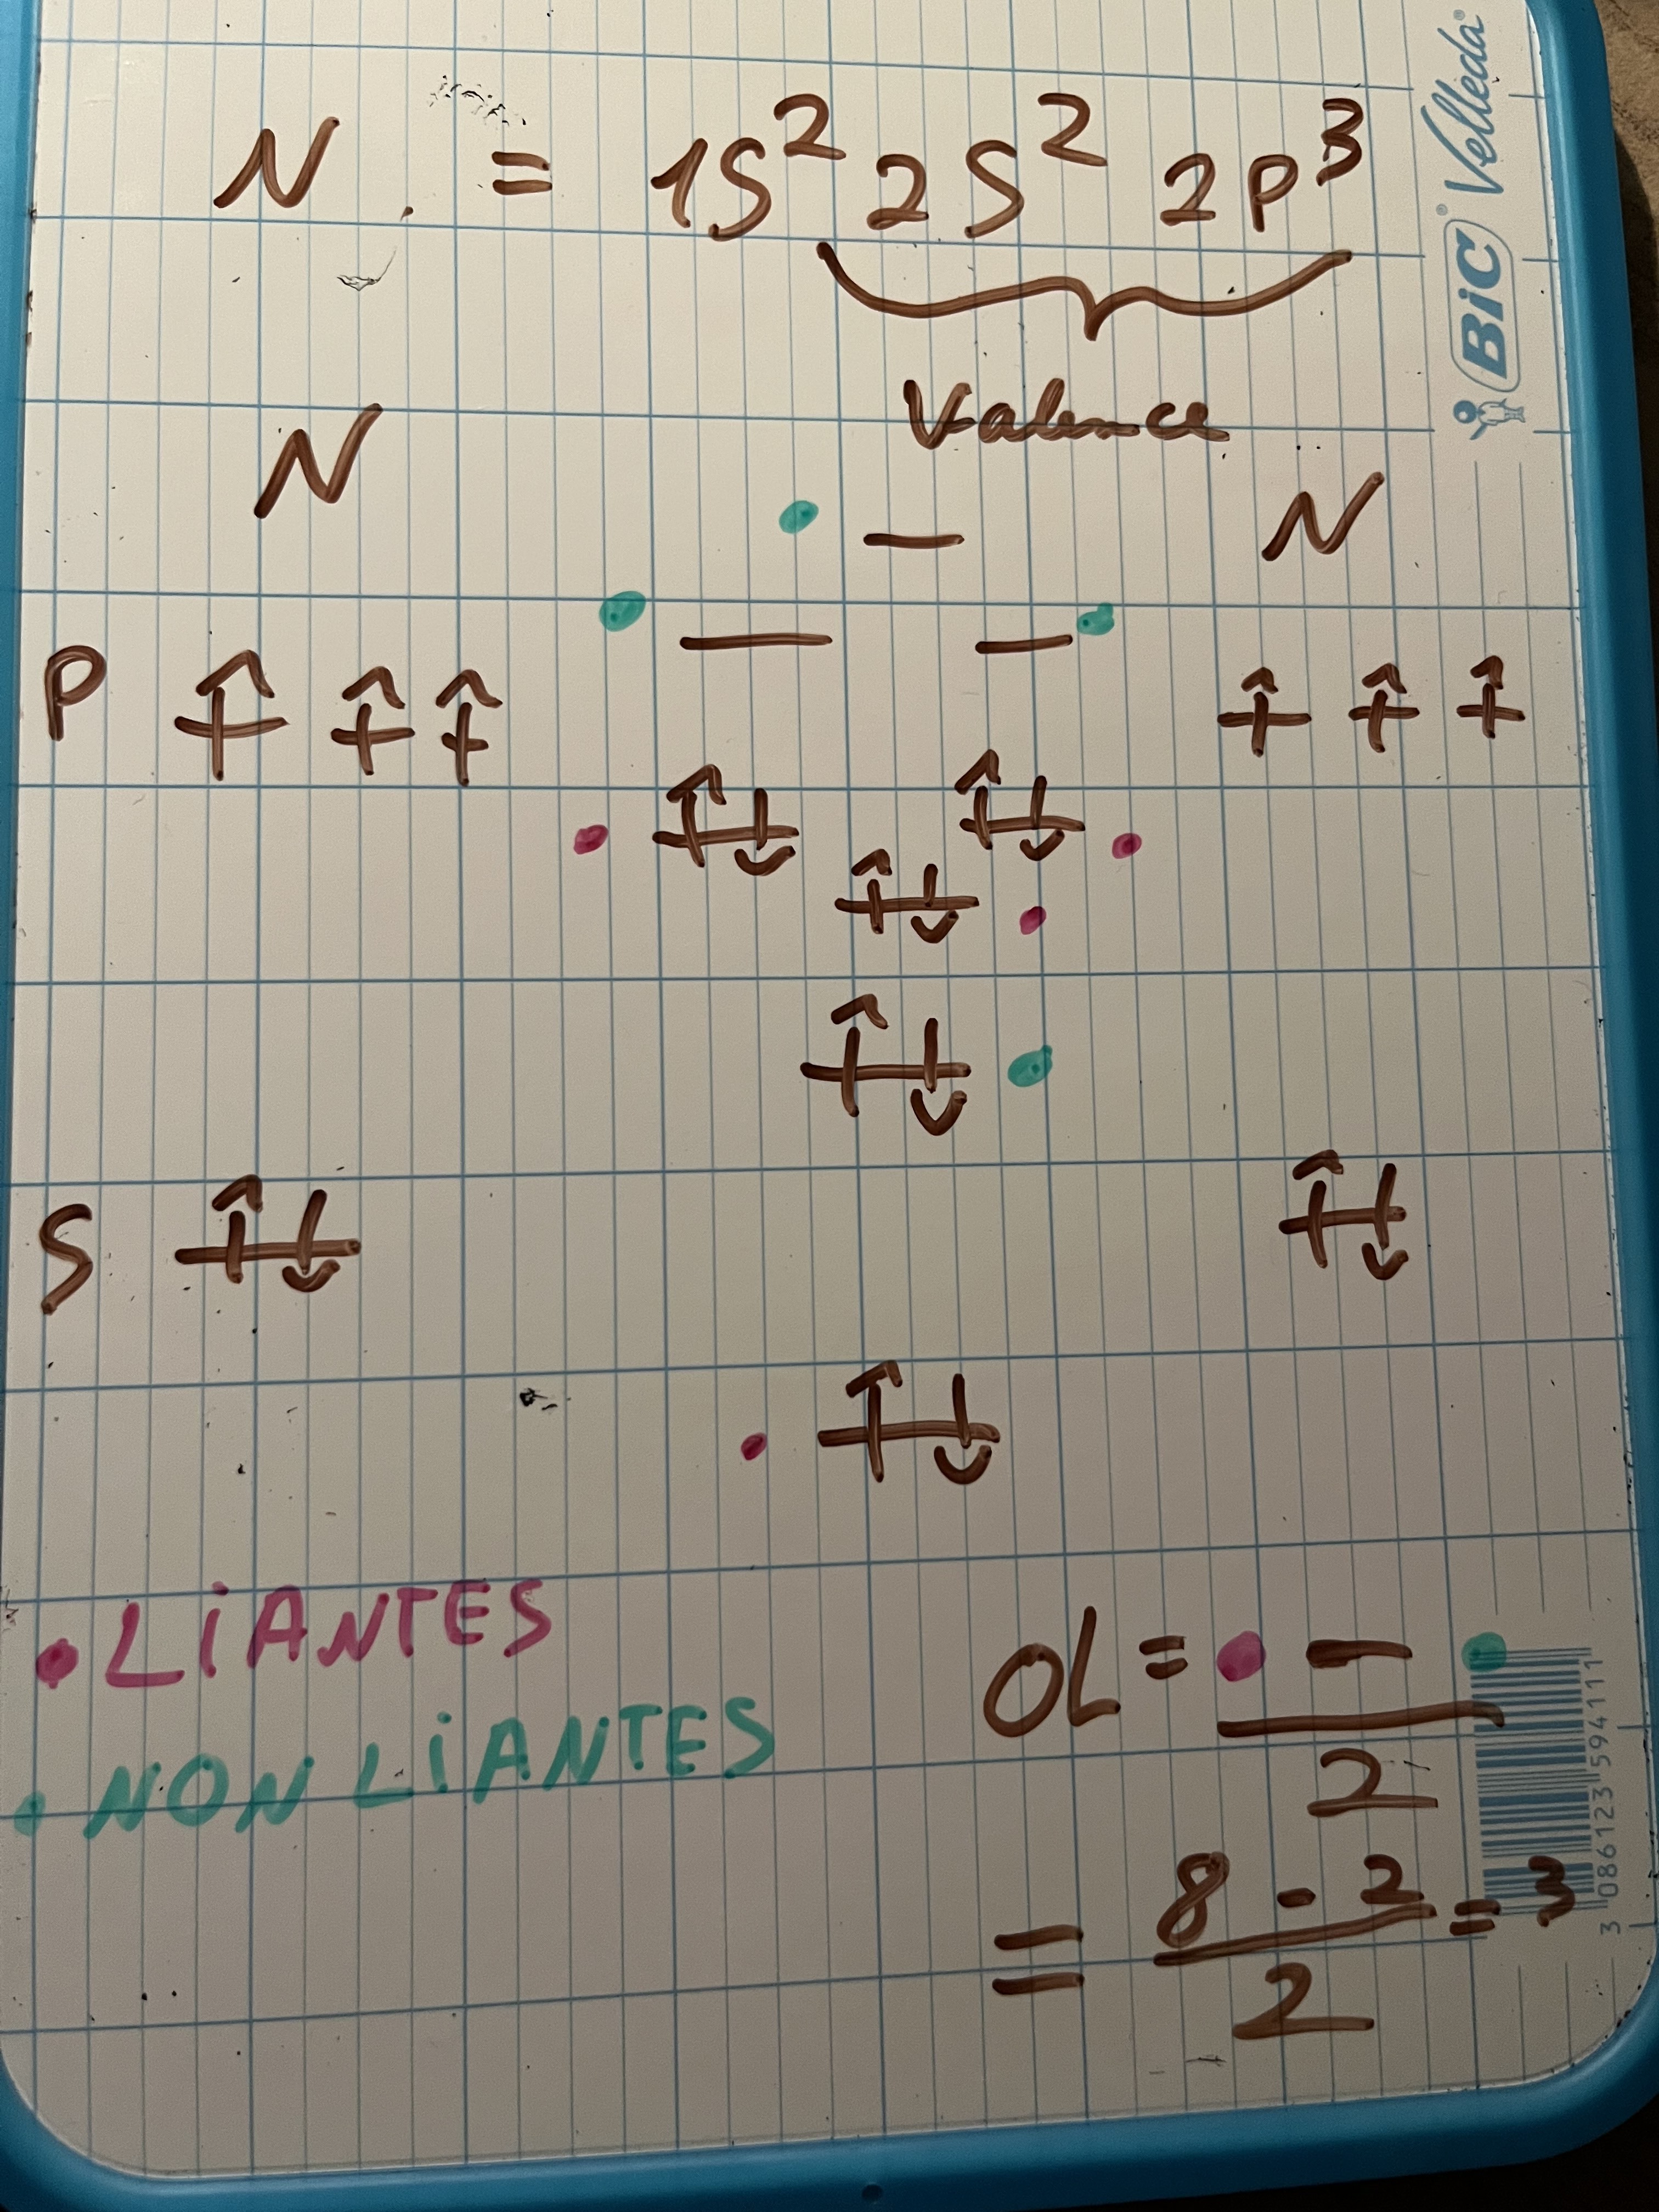 N = 1S² 2S² 2P³
Valence
N N
P
S
• LIANTES
• NON LIANTES
OL = • − •
2
= 8 - 2 = 3
2
BiC® Velleda®
3 086123 594111